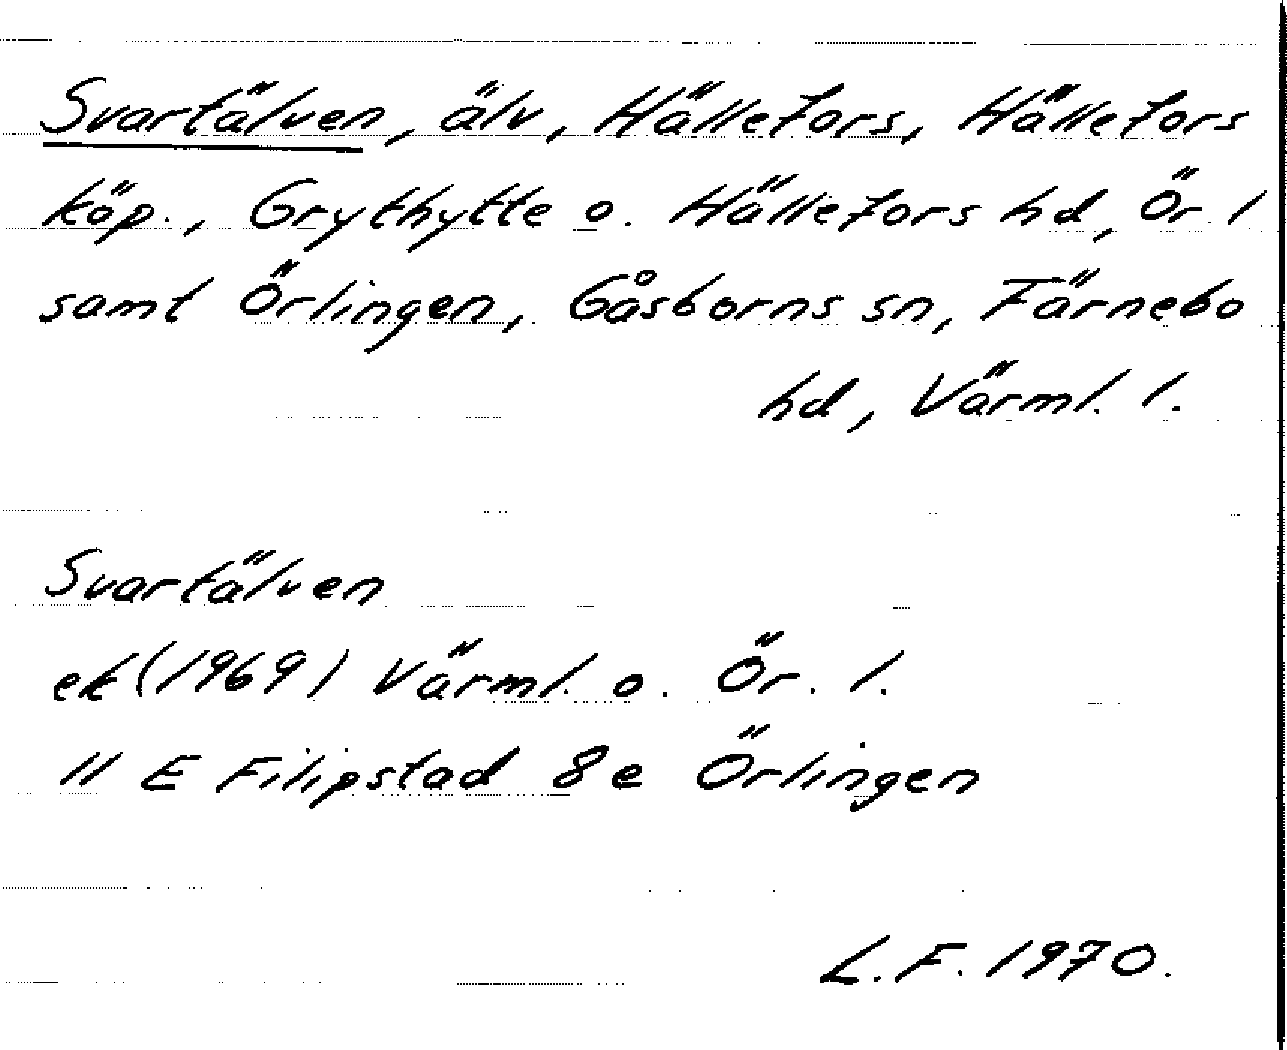 Svartälven, älv, Hällefors, Hällefors
köp., Grythytte o. Hällefors hd, Ör. l
samt Örlingen, Gåsborns sn, Färnebo
hd, Värml. l.
Svartälven
ek (1969) Värml. o. Ör. l.
11 E Filipstad 8e Örlingen
L.F. 1970.